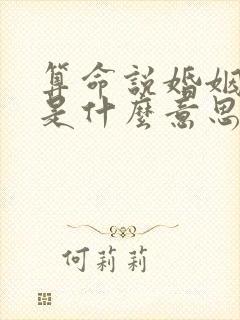 算命説婚姻
是什麼意思
何莉莉